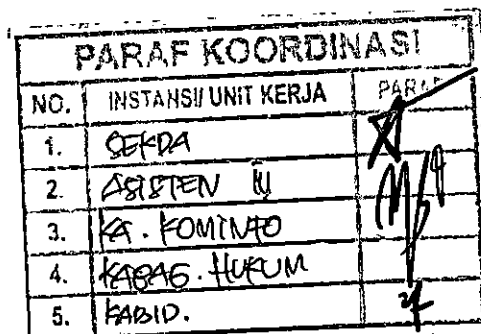 PARAF KOORDINASI
NO. INSTANSI/ UNIT KERJA PARAF
1. SEKDA
2. ASISTEN III
3. KA. KOMINFO
4. KABAG. HUKUM
5. KABID.